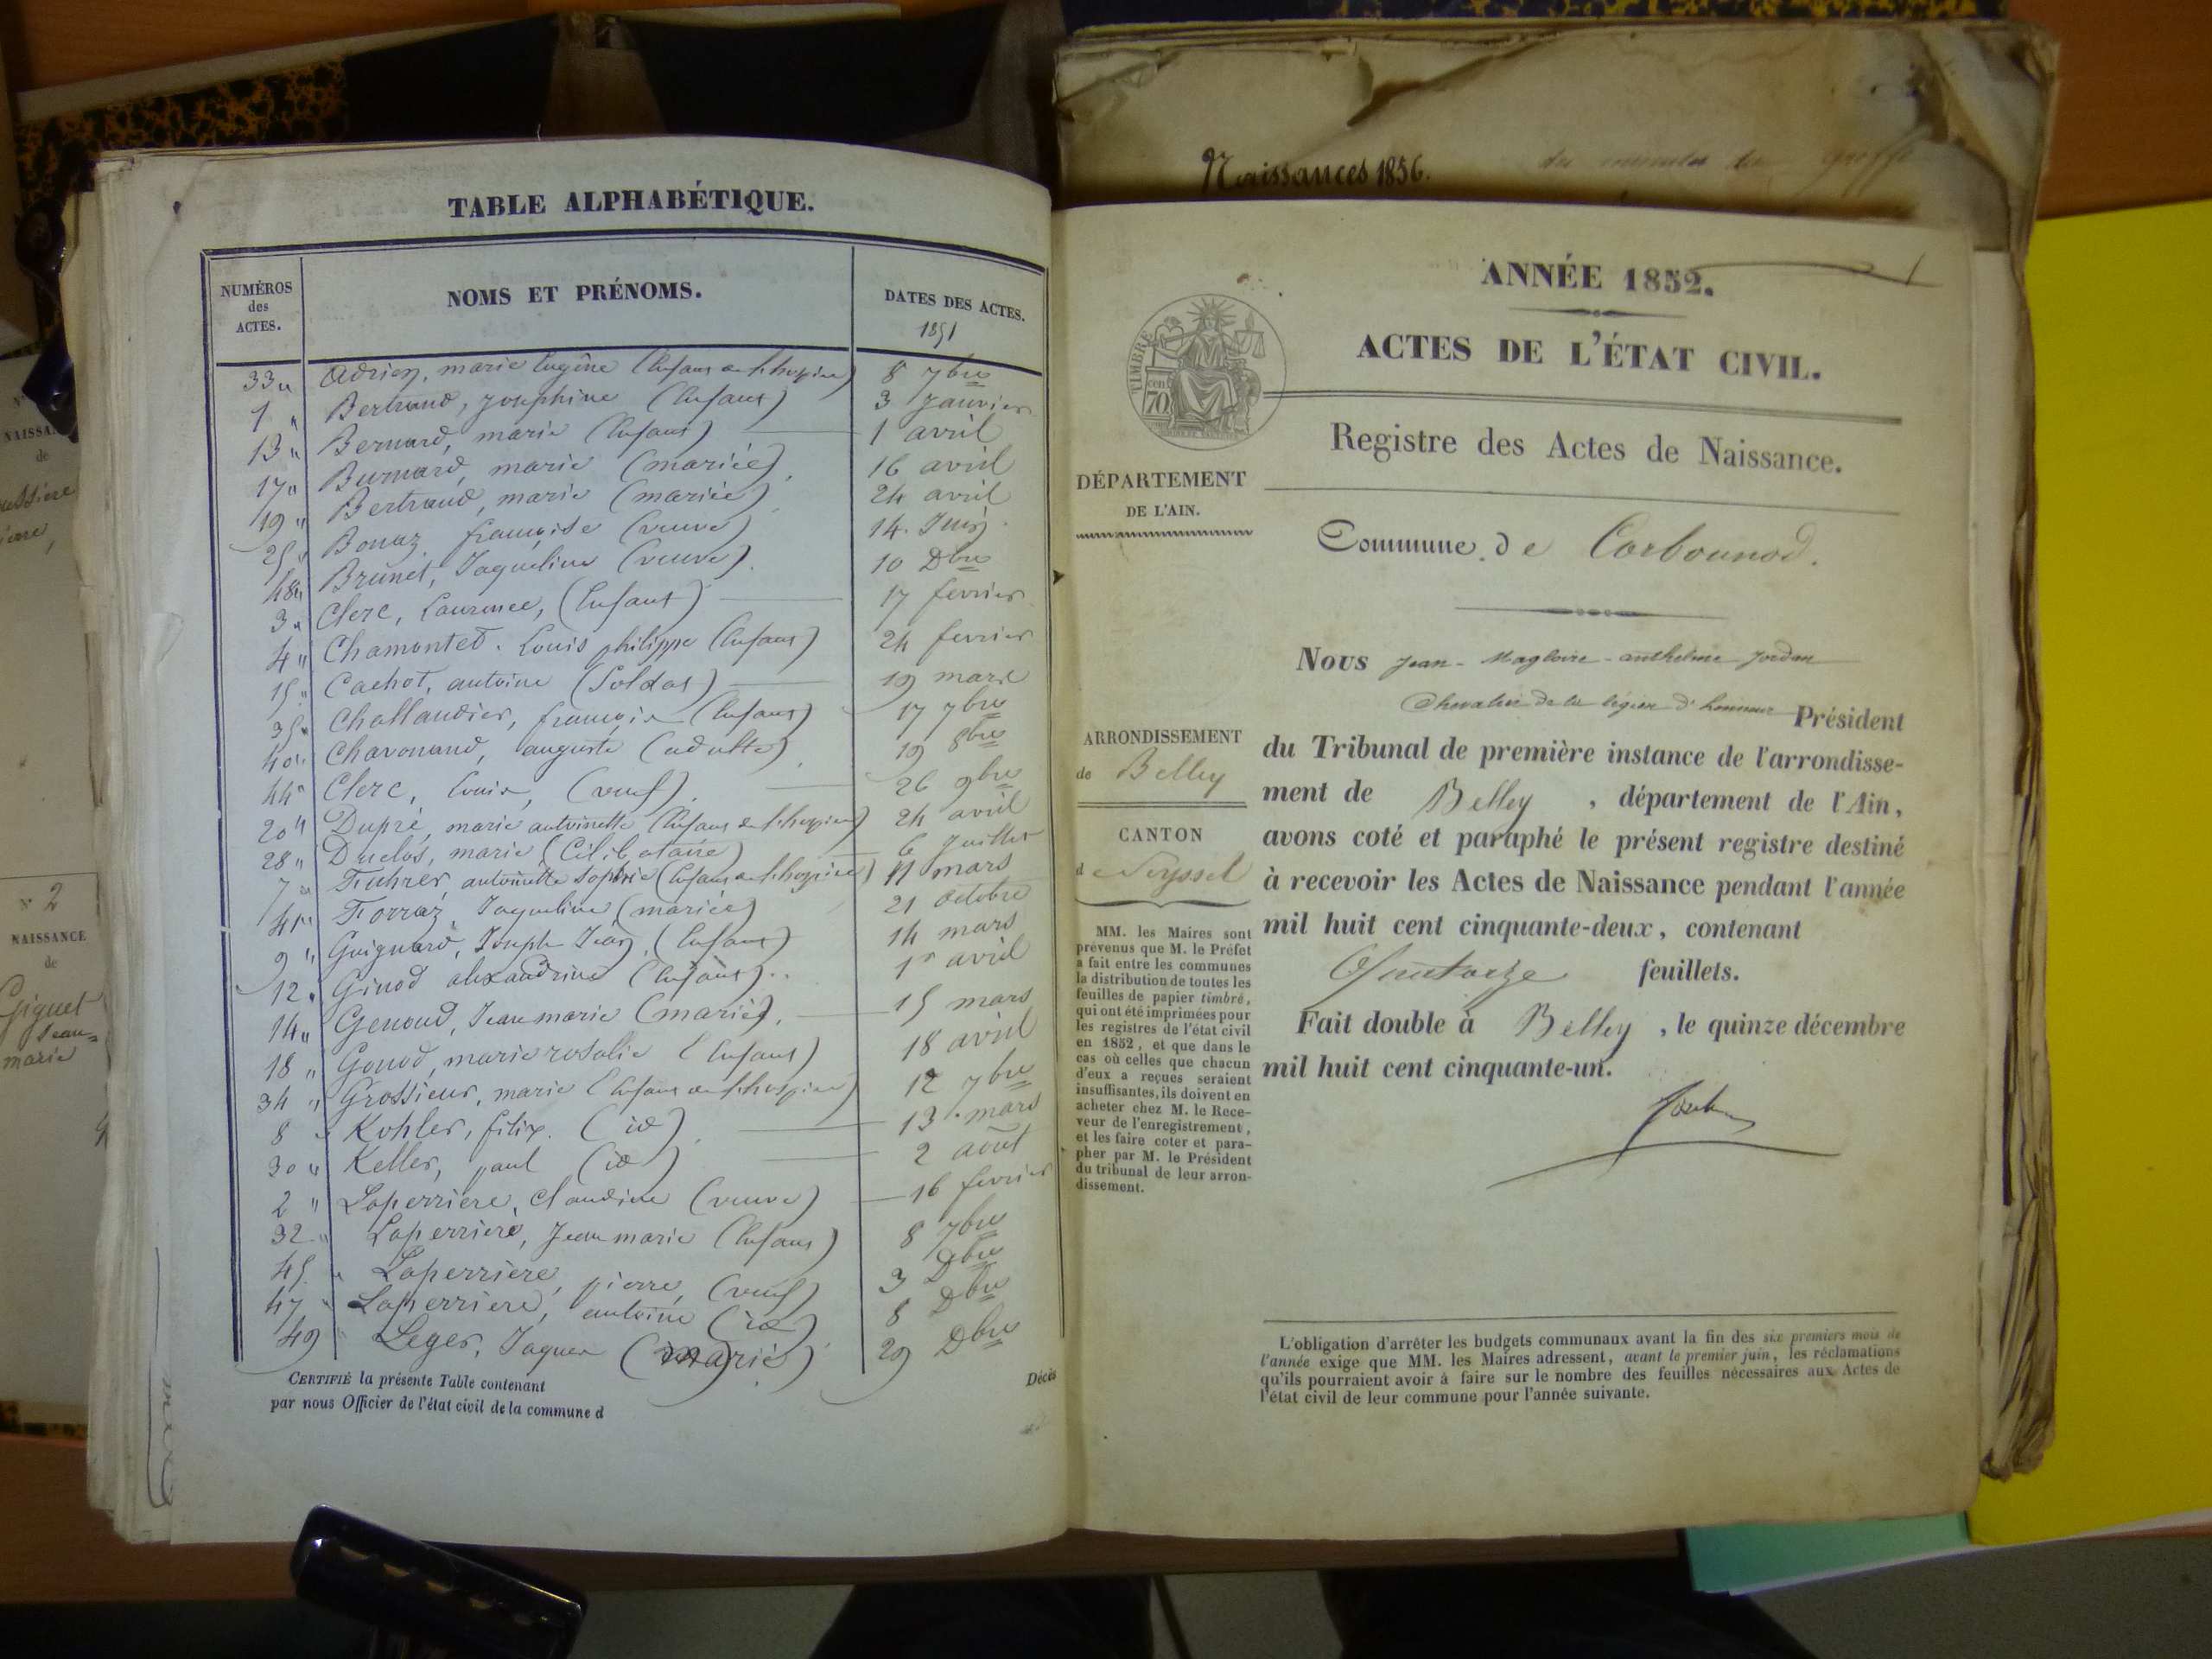 Naissances 1856.
TABLE ALPHABÉTIQUE.
NUMÉROS des ACTES.
NOMS ET PRÉNOMS.
DATES DES ACTES.
1851
33 " Adrien, marie Eugène (Enfant de l'hospice) 8 7bre
1 " Bertrand, Josephine (Enfant) 3 Janvier
13 " Bernard, marie (Enfant) 1 avril
17 " Burnard, marie (mariée) 16 avril
19 " Bertrand, marie (mariée) 24 avril
25 " Bonaz françoise (veuve) 14. Juin
48 " Brunet, Jaqueline (veuve) 10 Dbre
3 " Clerc, Laurence, (Enfant) 17 fevrier
4 " Chamontet. Louis philippe (Enfant) 24 fevrier
15 " Cachot, antoine (Soldat) 19 mars
35 " Challandier, françois (Enfant) 17 7bre
40 " Chavonand, auguste (adulte) 19 8bre
44 " Clerc, Louis, (veuf) 26 9bre
20 " Dupré, marie antoinette (Enfant de l'hospice) 24 avril
28 " Duclos, marie (Célibataire) 6 Juillet
7 " Fuhrer antoinette Sophie (Enfant de l'hospice) 11 mars
41 " Forraz, Jaqueline (mariée) 21 octobre
9 " Guignard, Joseph Jean, (Enfant) 14 mars
12 " Ginod alexandrine (Enfant) 1r avril
14 " Genoud, Jean marie (marié) 15 mars
18 " Gonod, marie rosalie (Enfant) 18 avril
34 " Grossieur, marie (Enfant de l'hospice) 12 7bre
8 " Kohler, félix. (id) 13. mars
30 " Keller, paul (id) 2 août
2 " Laperriere, Claudine (veuve) 16 fevrier
32 " Laperriere, Jean marie (Enfant) 8 7bre
45. " Laperriere, pierre, (veuf) 3 Dbre
47 " Laperriere, antoine (id) 8 Dbre
49 " Leger, Jaques (marié) 29 Dbre
CERTIFIÉ la présente Table contenant
Décès
par nous Officier de l'état civil de la commune d
N° 2
NAISSANCE
de
Giguet
Jean=
marie
ANNÉE 1852.
1
ACTES DE L'ÉTAT CIVIL.
TIMBRE
cen.
70
Registre des Actes de Naissance.
DÉPARTEMENT
DE L'AIN.
Commune de Corbonod.
Nous Jean-Magloire-anthelme Jordan
Chevalier de la légion d'honneur Président
du Tribunal de première instance de l'arrondisse-
ment de Belley, département de l'Ain,
avons coté et paraphé le présent registre destiné
à recevoir les Actes de Naissance pendant l'année
mil huit cent cinquante-deux, contenant
Quatorze feuillets.
Fait double à Belley, le quinze décembre
mil huit cent cinquante-un.
ARRONDISSEMENT
de Belley
CANTON
de Seyssel
MM. les Maires sont
prévenus que M. le Préfet
a fait entre les communes
la distribution de toutes les
feuilles de papier timbré,
qui ont été imprimées pour
les registres de l'état civil
en 1852, et que dans le
cas où celles que chacun
d'eux a reçues seraient
insuffisantes, ils doivent en
acheter chez M. le Rece-
veur de l'enregistrement,
et les faire coter et para-
pher par M. le Président
du tribunal de leur arron-
dissement.
L'obligation d'arrêter les budgets communaux avant la fin des six premiers mois de
l'année exige que MM. les Maires adressent, avant le premier juin, les réclamations
qu'ils pourraient avoir à faire sur le nombre des feuilles nécessaires aux Actes de
l'état civil de leur commune pour l'année suivante.